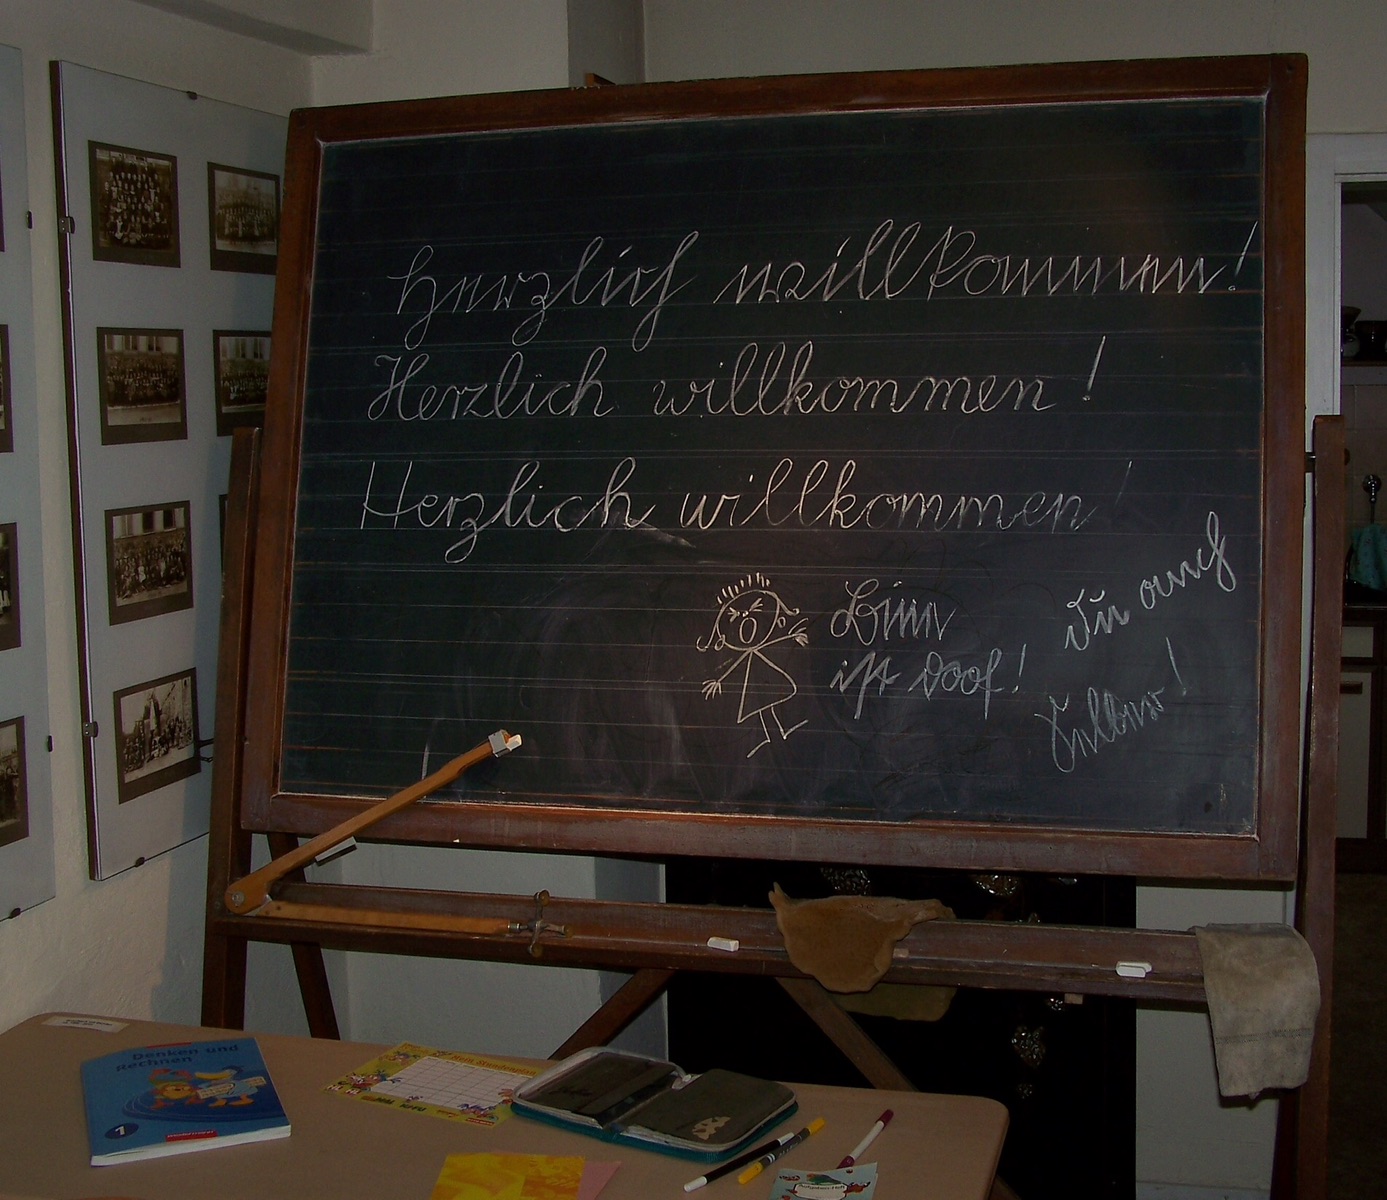 Herzlich willkommen!
Herzlich willkommen!
Herzlich willkommen!
ist doof!
Du auch
Selber!
Denken und
Rechnen
1
Mein Stundenplan